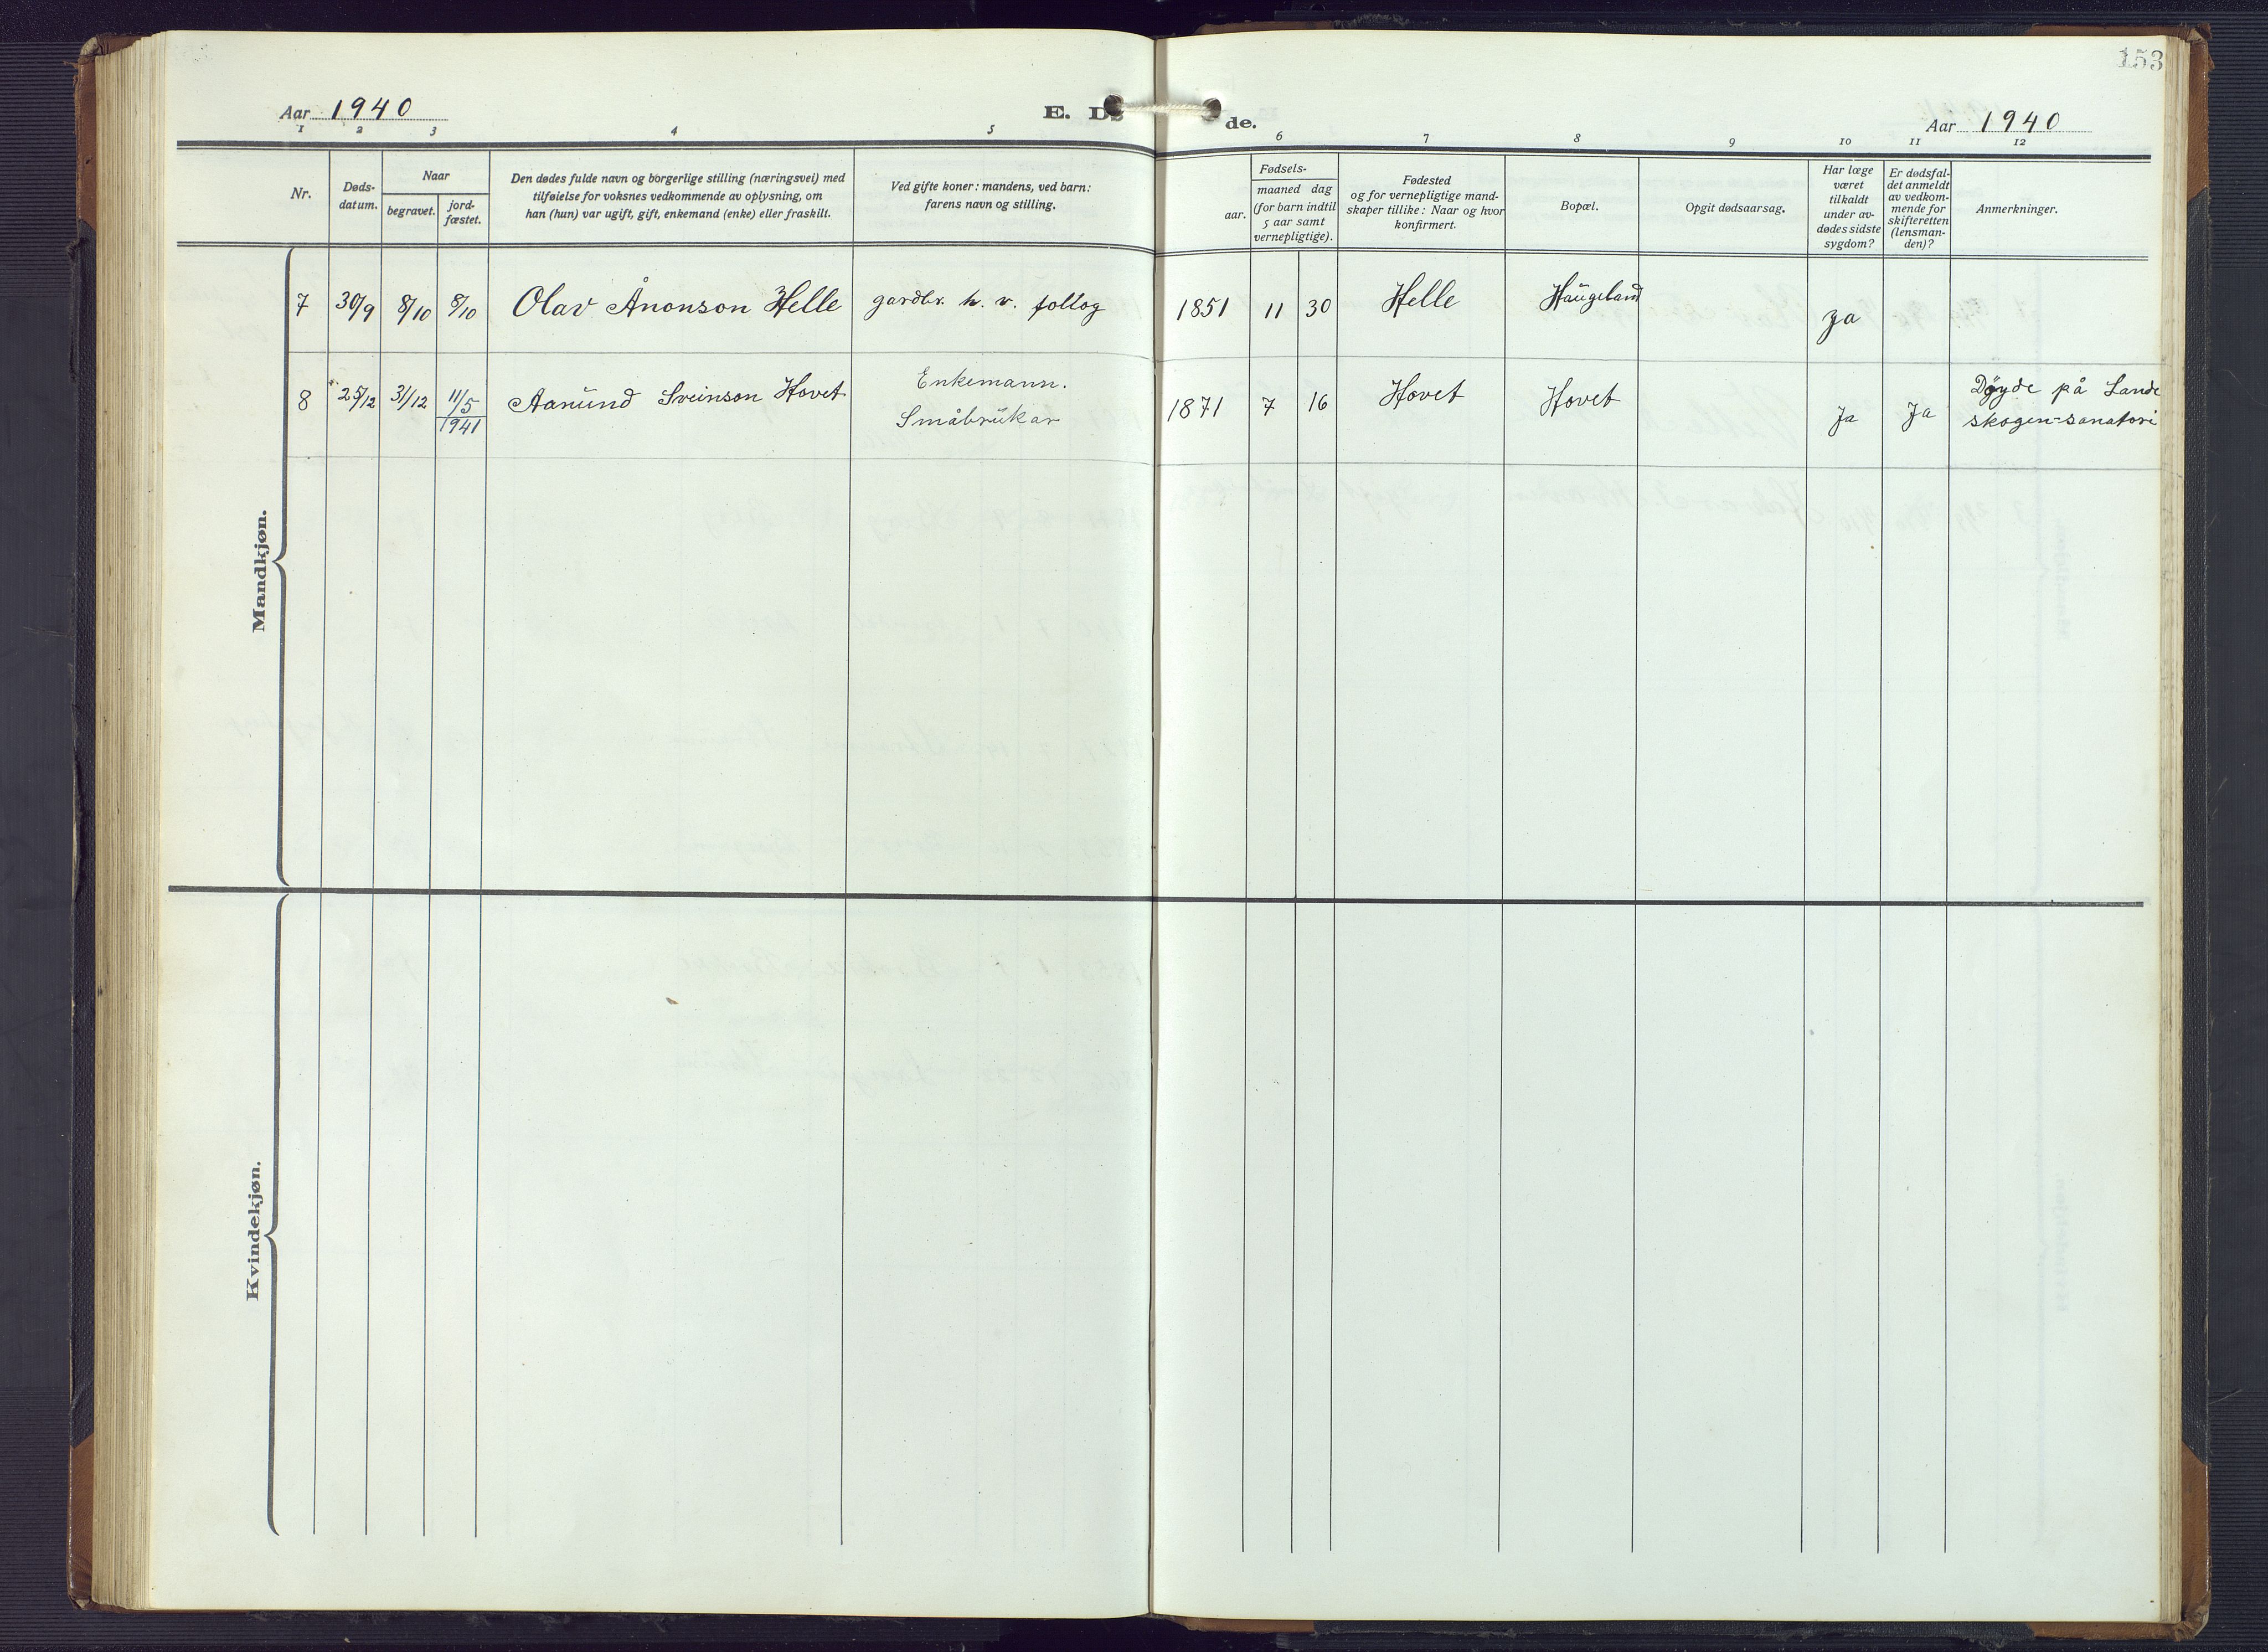 153
Aar 1940
E. Dø de.
Aar 1940
1 2 3 4 5 6 7 8 9 10 11 12
Nr.
Døds-
datum.
Naar
begravet.
jord-
fæstet.
Den dødes fulde navn og borgerlige stilling (næringsvei) med
tilføielse for voksnes vedkommende av oplysning, om
han (hun) var ugift, gift, enkemand (enke) eller fraskilt.
Ved gifte koner: mandens, ved barn:
farens navn og stilling.
Fødsels-
aar.
maaned dag
(for barn indtil
5 aar samt
vernepligtige).
Fødested
og for vernepligtige mand-
skaper tillike: Naar og hvor
konfirmert.
Bopæl.
Opgit dødsaarsag.
Har læge
været
tilkaldt
under av-
dødes sidste
sygdom?
Er dødsfal-
det anmeldt
av vedkom-
mende for
skifteretten
(lensman-
den)?
Anmerkninger.
Mandkjøn.
7 30/9 8/10 8/10 Olav Ånonson Helle gardbr. h. v. follog 1851 11 30 Helle Haugeland ja
8 25/12 31/12 11/5 1941 Aanund Sveinson Hovet Enkemann. Småbrukar 1871 7 16 Hovet Hovet Ja Ja Døyde på Lande
skogen-sanatori
Kvindekjøn.